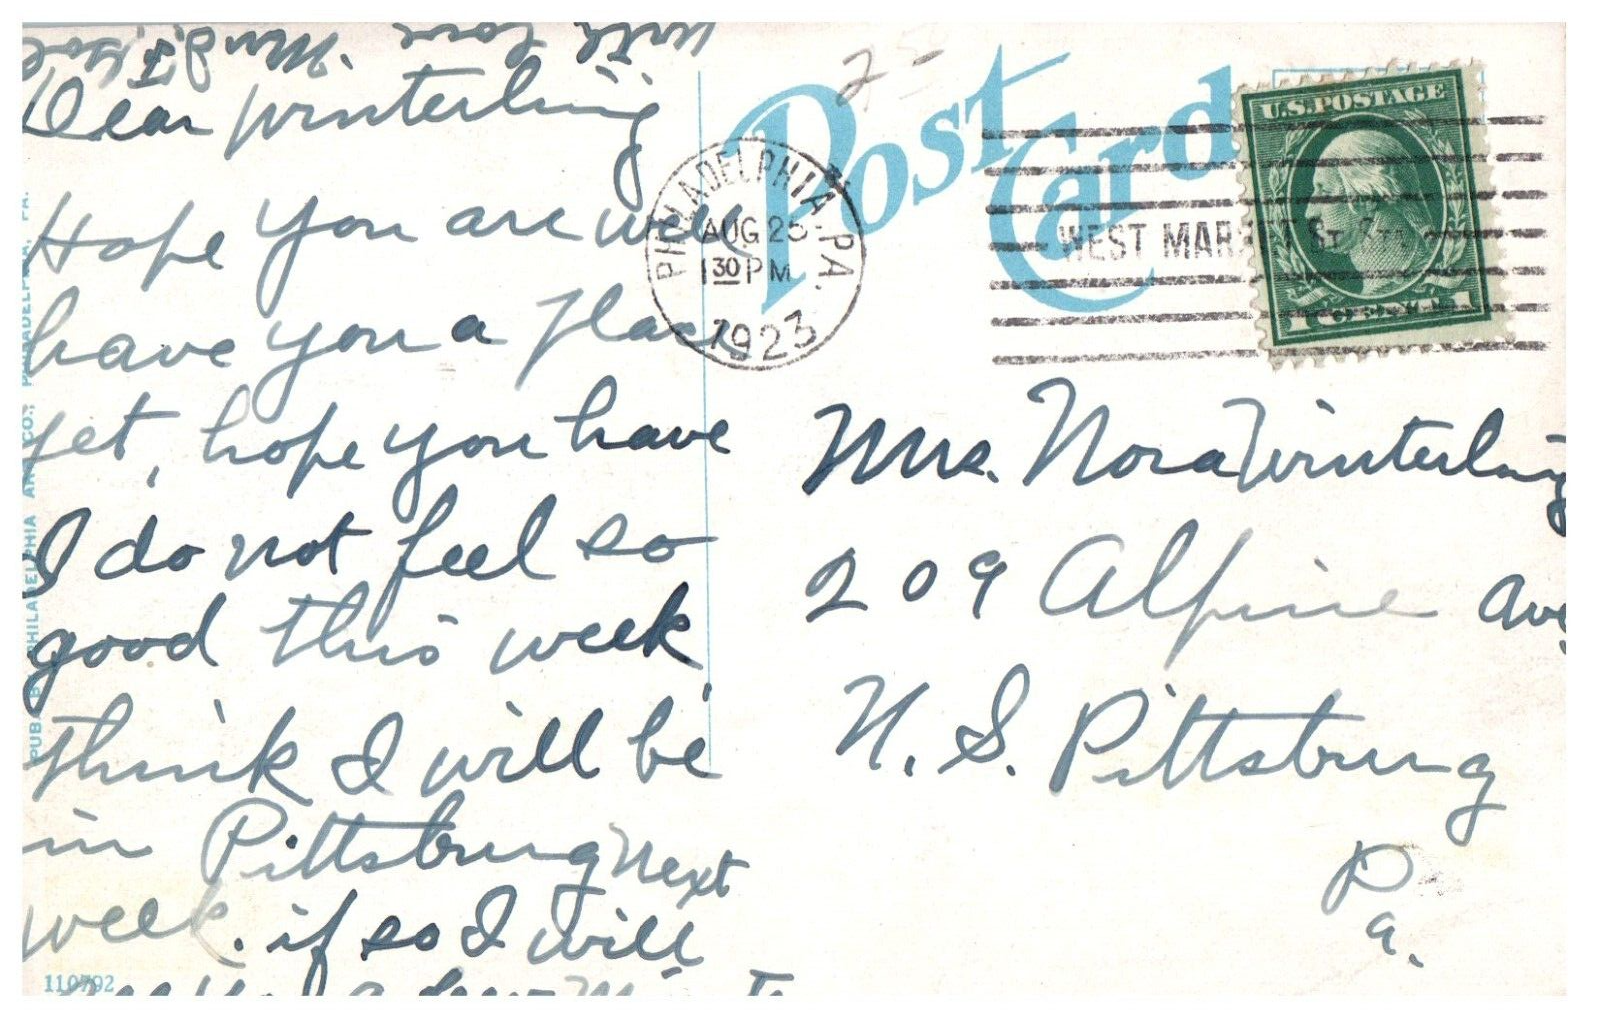 with love Mrs. J. F.
Dear Winterling
Hope you are well
have you a place
yet, hope you have
I do not feel so
good this week,
think I will be
in Pittsburg next
week. if so I will
a few
110792
PUB. BY PHILADELPHIA ART CO., PHILADELPHIA, PA.
Post Card
PHILADELPHIA, PA.
AUG 25
1 30 PM
1923
WEST MARKET ST. STA.
U.S. POSTAGE
1 CENT 1
Mrs. Nora Winterling
209 Alpine Ave
N. S. Pittsburg
Pa.